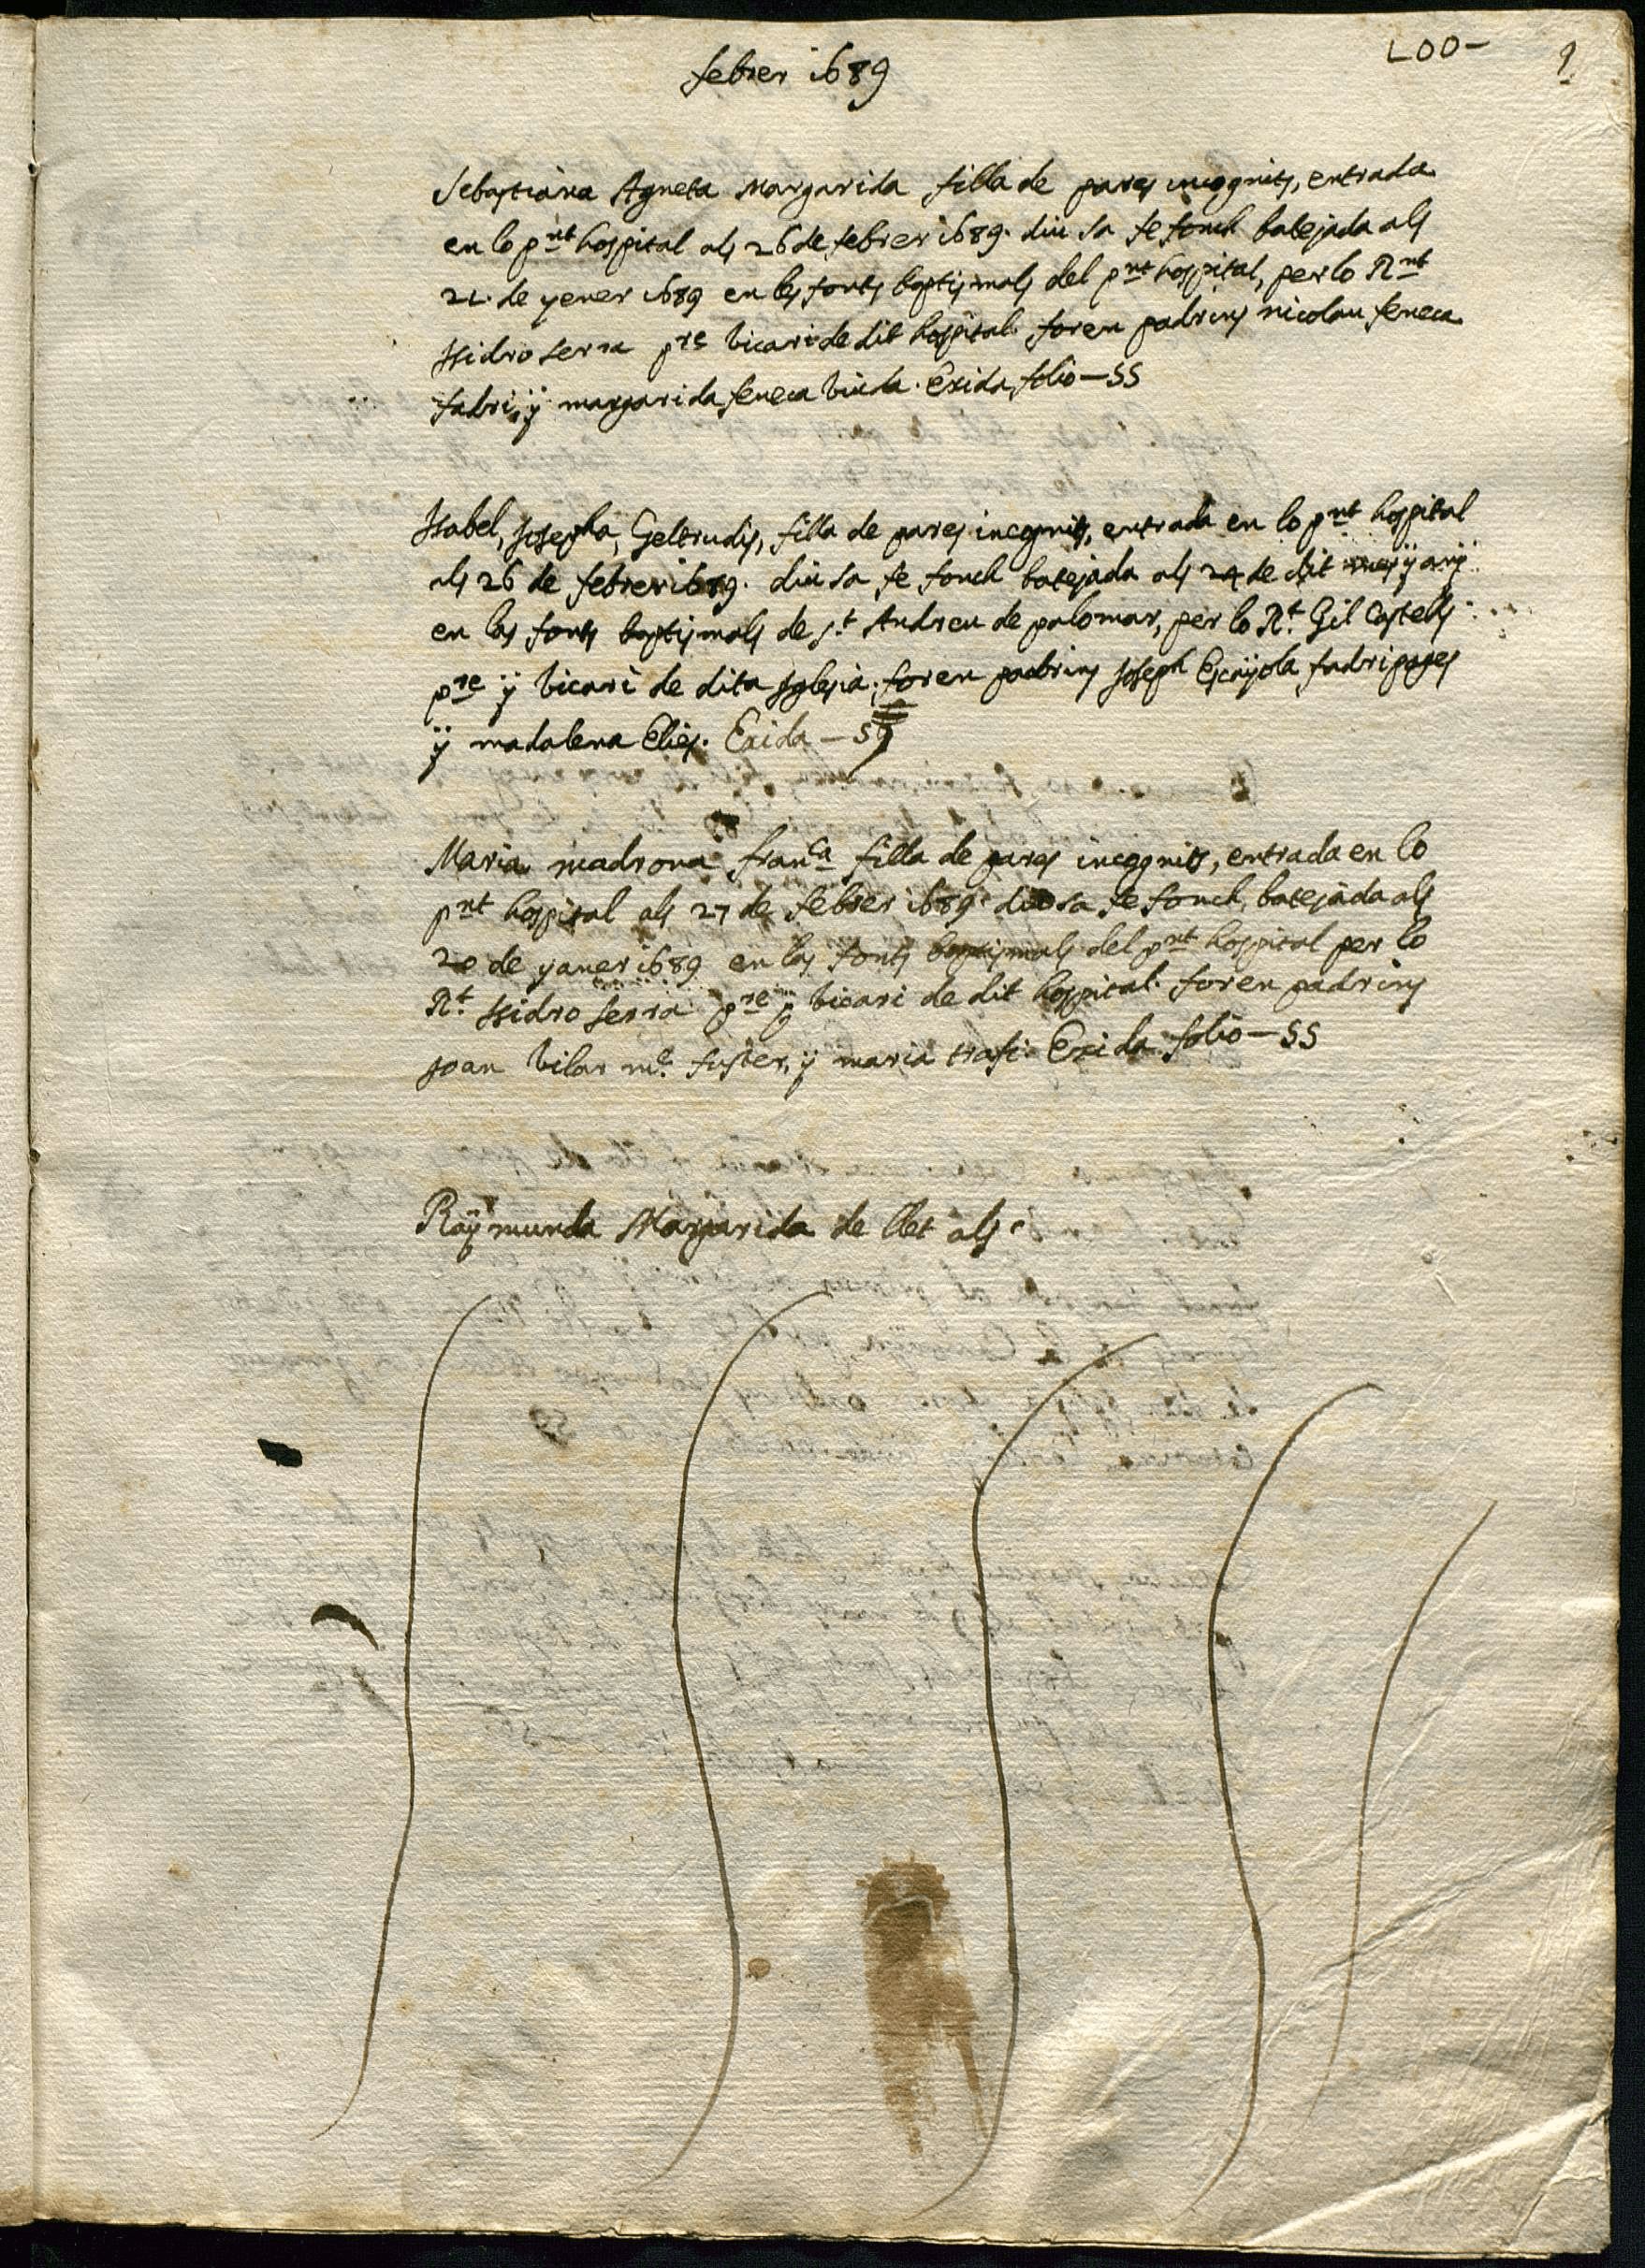 febrer 1689
LOO-
Sebastiana Agneta Margarida filla de pares incognits, entrada
en lo pnt hospital als 26 de febrer 1689. diu sa fe fonch batejada als
21. de yener 1689 en les fonts baptismals del pnt hospital, per lo Rnt
Isidro serra pre vicari de dit hospital. foren padrins nicolau seneca
fadri, ÿ margarida seneca viuda. Exida folio—55
Isabel, Josepha, Geltrudis, filla de pares incognits, entrada en lo pnt hospital
als 26 de febrer 1689. diu sa fe fonch batejada als 24 de dit mes ÿ anÿ
en las fonts baptismals de st Andreu de palomar, per lo Rt. Gil Castells
pre ÿ vicari de dita Iglesia. foren padrins Joseph Escaÿola fadri pages
ÿ madalena Elies. Exida —59
Maria madrona franca filla de pares incognits, entrada en lo
pnt hospital als 27 de febrer 1689. diu sa fe fonch batejada als
20 de yaner 1689 en las fonts baptismals del pnt hospital per lo
Rt Isidro serra pre ÿ vicari de dit hospital. foren padrins
Joan vilar me fuster, ÿ maria trafi. Exida folio—55
Raÿmunda Margarida de llet als.